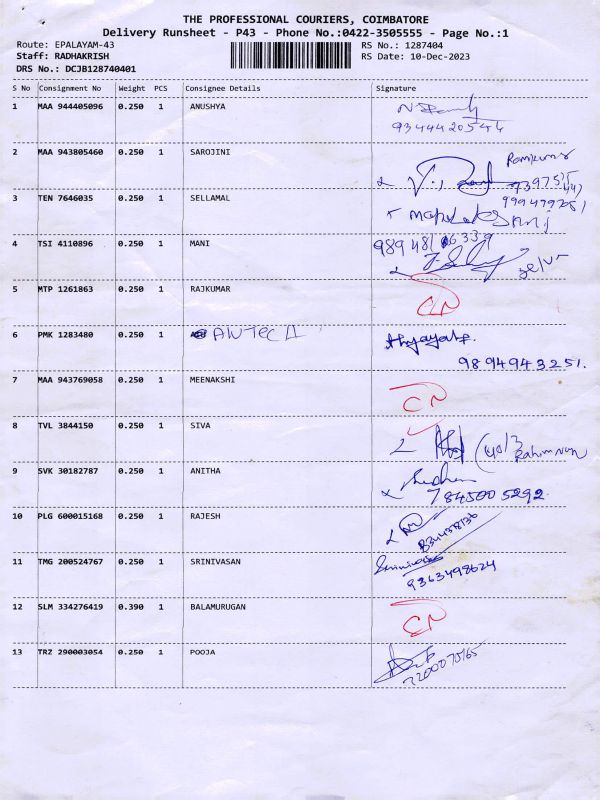 THE PROFESSIONAL COURIERS, COIMBATORE
Delivery Runsheet - P43 - Phone No.:0422-3505555 - Page No.:1
Route: EPALAYAM-43 RS No.: 1287404
Staff: RADHAKRISH RS Date: 10-Dec-2023
DRS No.: DCJB128740401
S No Consignment No Weight PCS Consignee Details Signature
1 MAA 944405096 0.250 1 ANUSHYA
9344420544
2 MAA 943805460 0.250 1 SAROJINI
Ramkumar
3 TEN 7646035 0.250 1 SELLAMAL
4 TSI 4110896 0.250 1 MANI
5 MTP 1261863 0.250 1 RAJKUMAR
CN
6 PMK 1283480 0.250 1
9894943251.
7 MAA 943769058 0.250 1 MEENAKSHI
CN
8 TVL 3844150 0.250 1 SIVA
9 SVK 30182787 0.250 1 ANITHA
7845005292
10 PLG 600015168 0.250 1 RAJESH
11 TMG 200524767 0.250 1 SRINIVASAN
Srinivasan
9363498624
12 SLM 334276419 0.390 1 BALAMURUGAN
CN
13 TRZ 290003054 0.250 1 POOJA